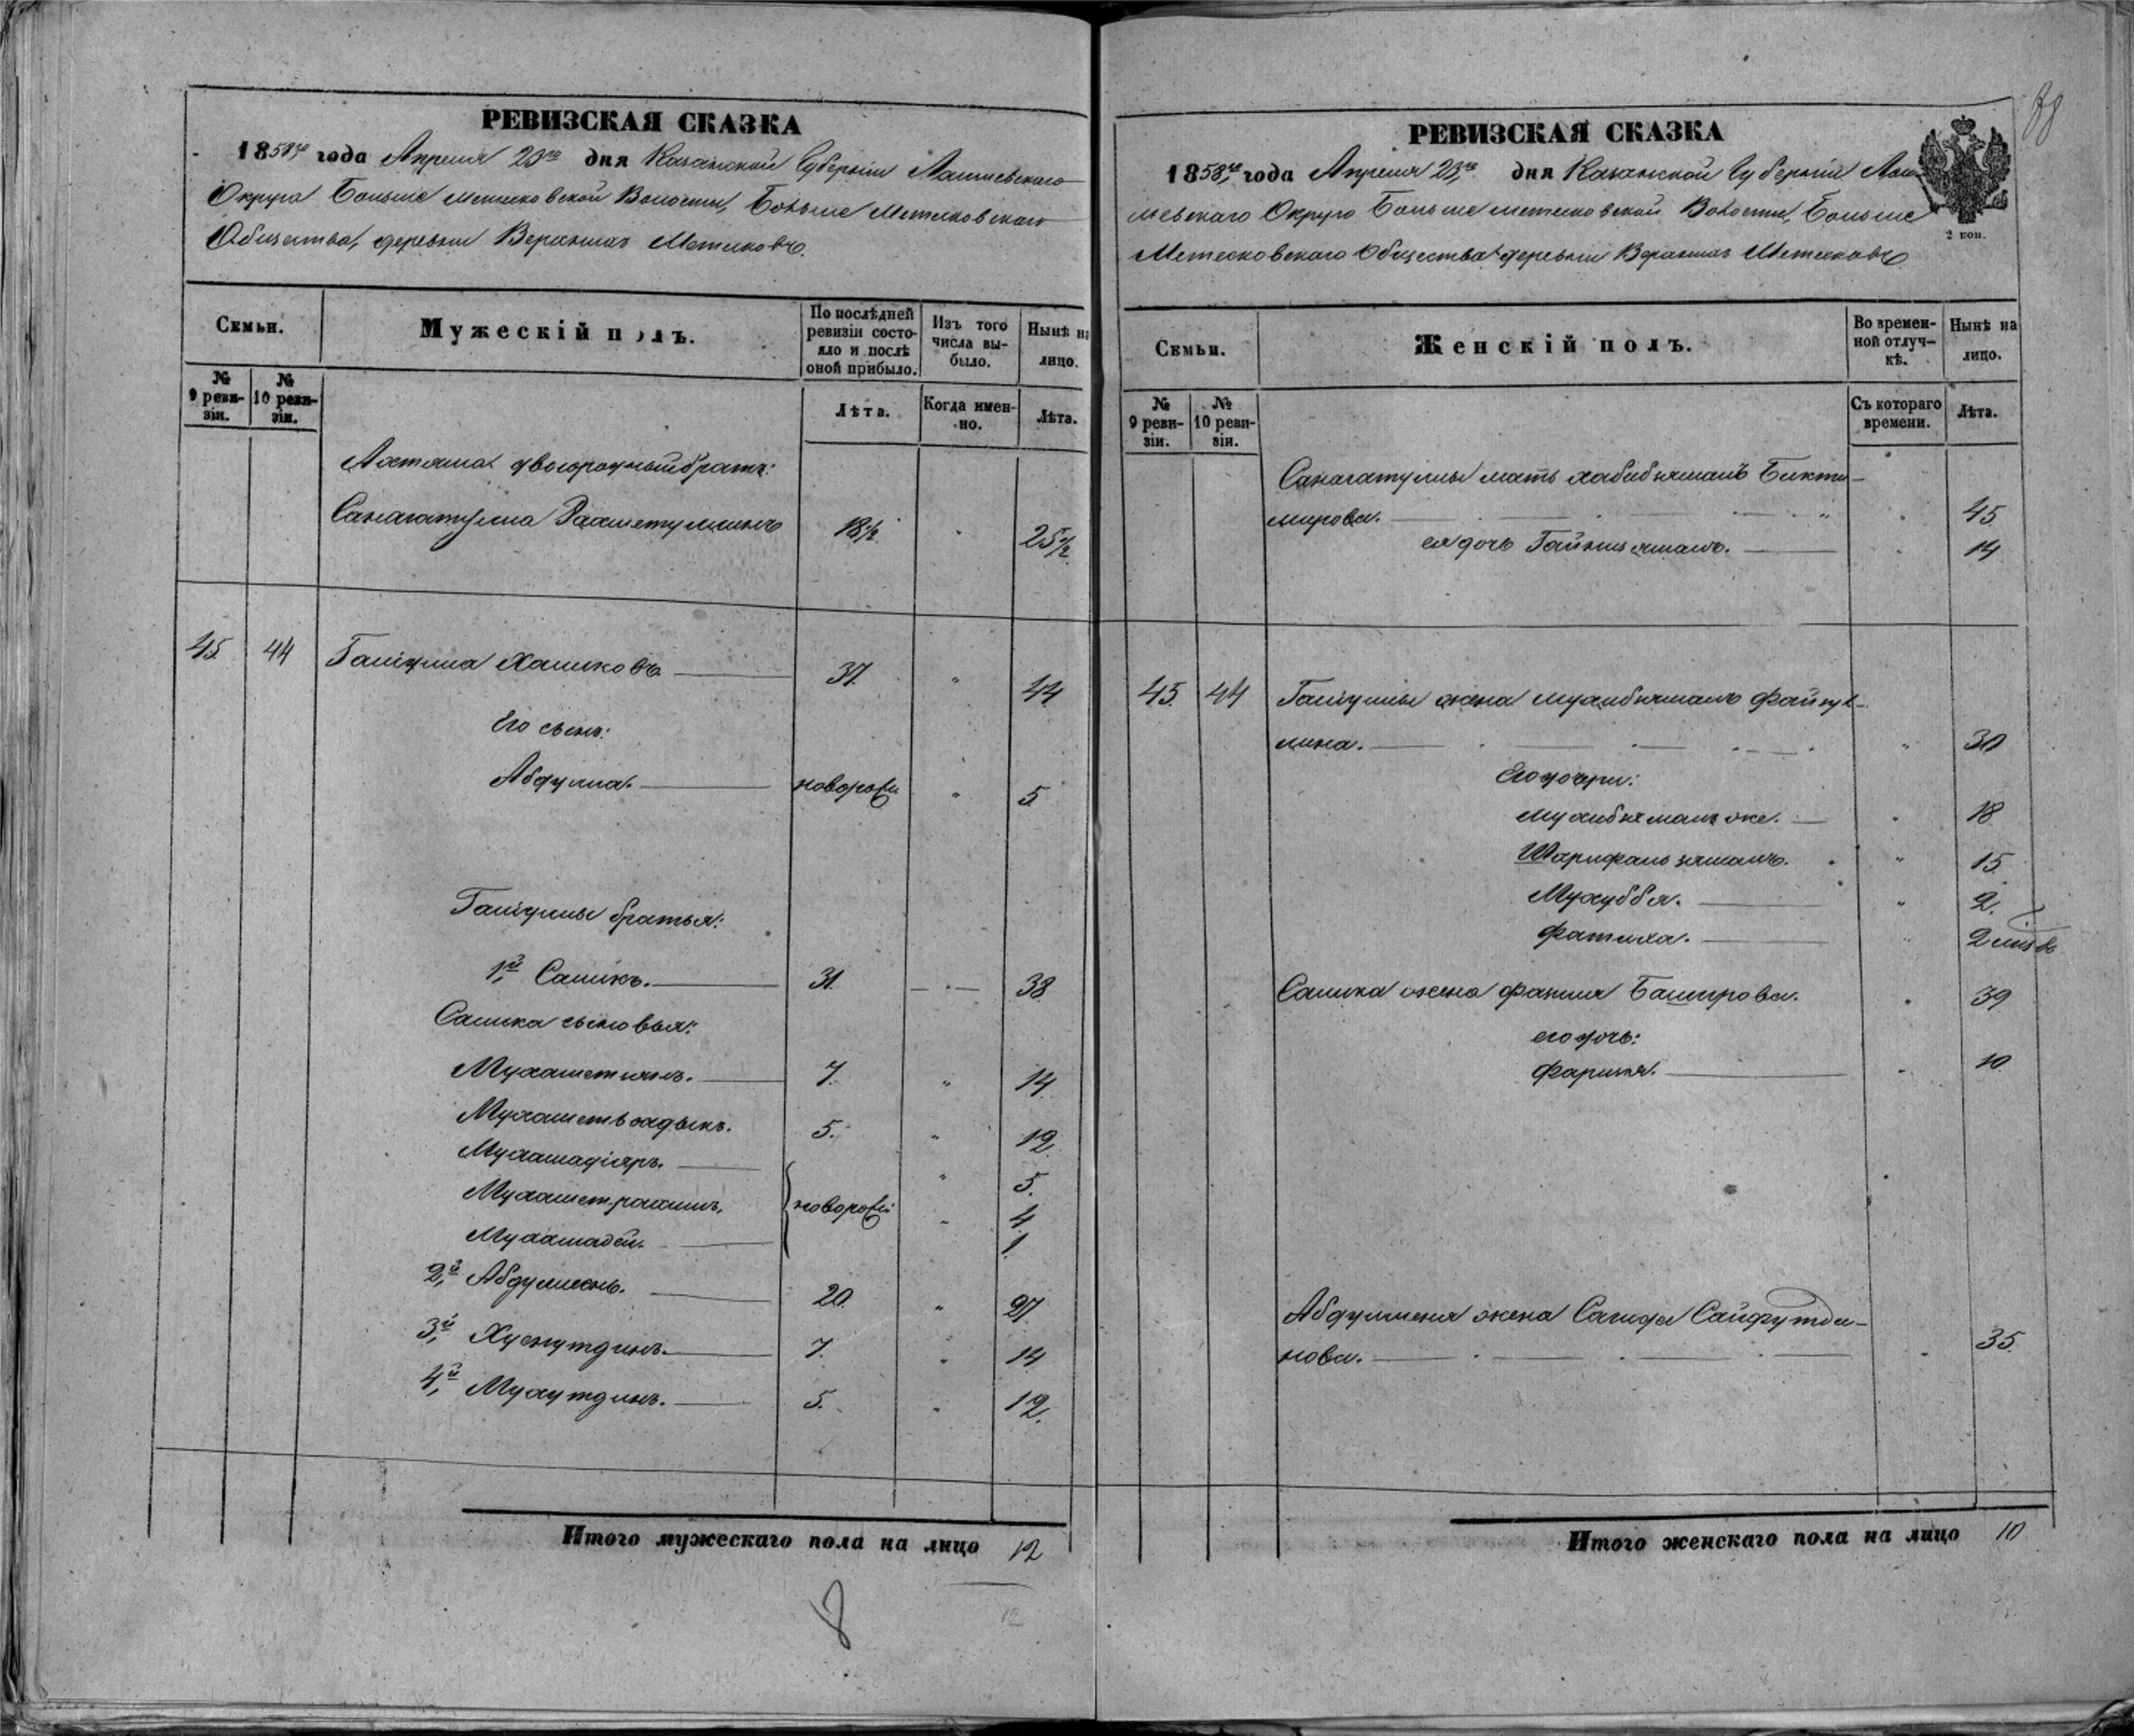 РЕВИЗСКАЯ СКАЗКА
1858го года Апреля 23го дня Казанской Губернiи Лаишевскаго
Округа Больше Метесковской Волости, Больше Метесковскаго
Общества, деревни Верхнихъ Метесковъ.
Семьи.
Мужескiй полъ.
По послѣдней ревизiи состо-
яло и послѣ оной прибыло.
Изъ того числа вы-
было.
Нынѣ на лицо.
№ 9 реви-
зiи.
№ 10 реви-
зiи.
Лѣта.
Когда имен-
но.
Лѣта.
двоюродный братъ:
Санагатулла Рахметуллинъ 18½ " 25½
45. 44 Галiулла Халиковъ 37. " 44
Его сынъ:
Абдулла. новорож " 5
Галiуллы братья:
1,й Саликъ. 31. 38
Салика сыновья:
7. " 14.
Мухаметьсадыкъ. 5. " 12.
Мухамадiяръ. " 5.
Мухаметрахимъ. новорож: " 4.
Мухамадей. 1.
2,й 20. " 27.
3,й Хуснутдинъ. 7. " 14
4,й Мухутдинъ. 5. " 12.
Итого мужескаго пола на лицо 12
8
12
РЕВИЗСКАЯ СКАЗКА
1858,го года Апреля 23,го дня Казанской Губернiи Лаи-
шевскаго Округа Больше метесковской Волости, Больше
Метесковскаго Общества деревни Верхнихъ Метесковъ
2 коп.
Семьи.
Женскiй полъ.
Во времен-
ной отлуч-
кѣ.
Нынѣ на лицо.
№ 9 реви-
зiи.
№ 10 реви-
зiи.
Съ котораго времени.
Лѣта.
Санагатуллы мать хабибзямалъ Бикти-
мирова. " 45.
ея дочь 14
45. 44 Галiуллы жена Файзул-
лина. " 30
Его дочери:
же. " 18
Шарифать " 15.
Мухубба. " 2.
Фатиха. " 2
Салика жена Баширова. " 39
его дочь:
10
жена Сагида Сайфутди-
нова. " 35.
Итого женскаго пола на лицо 10